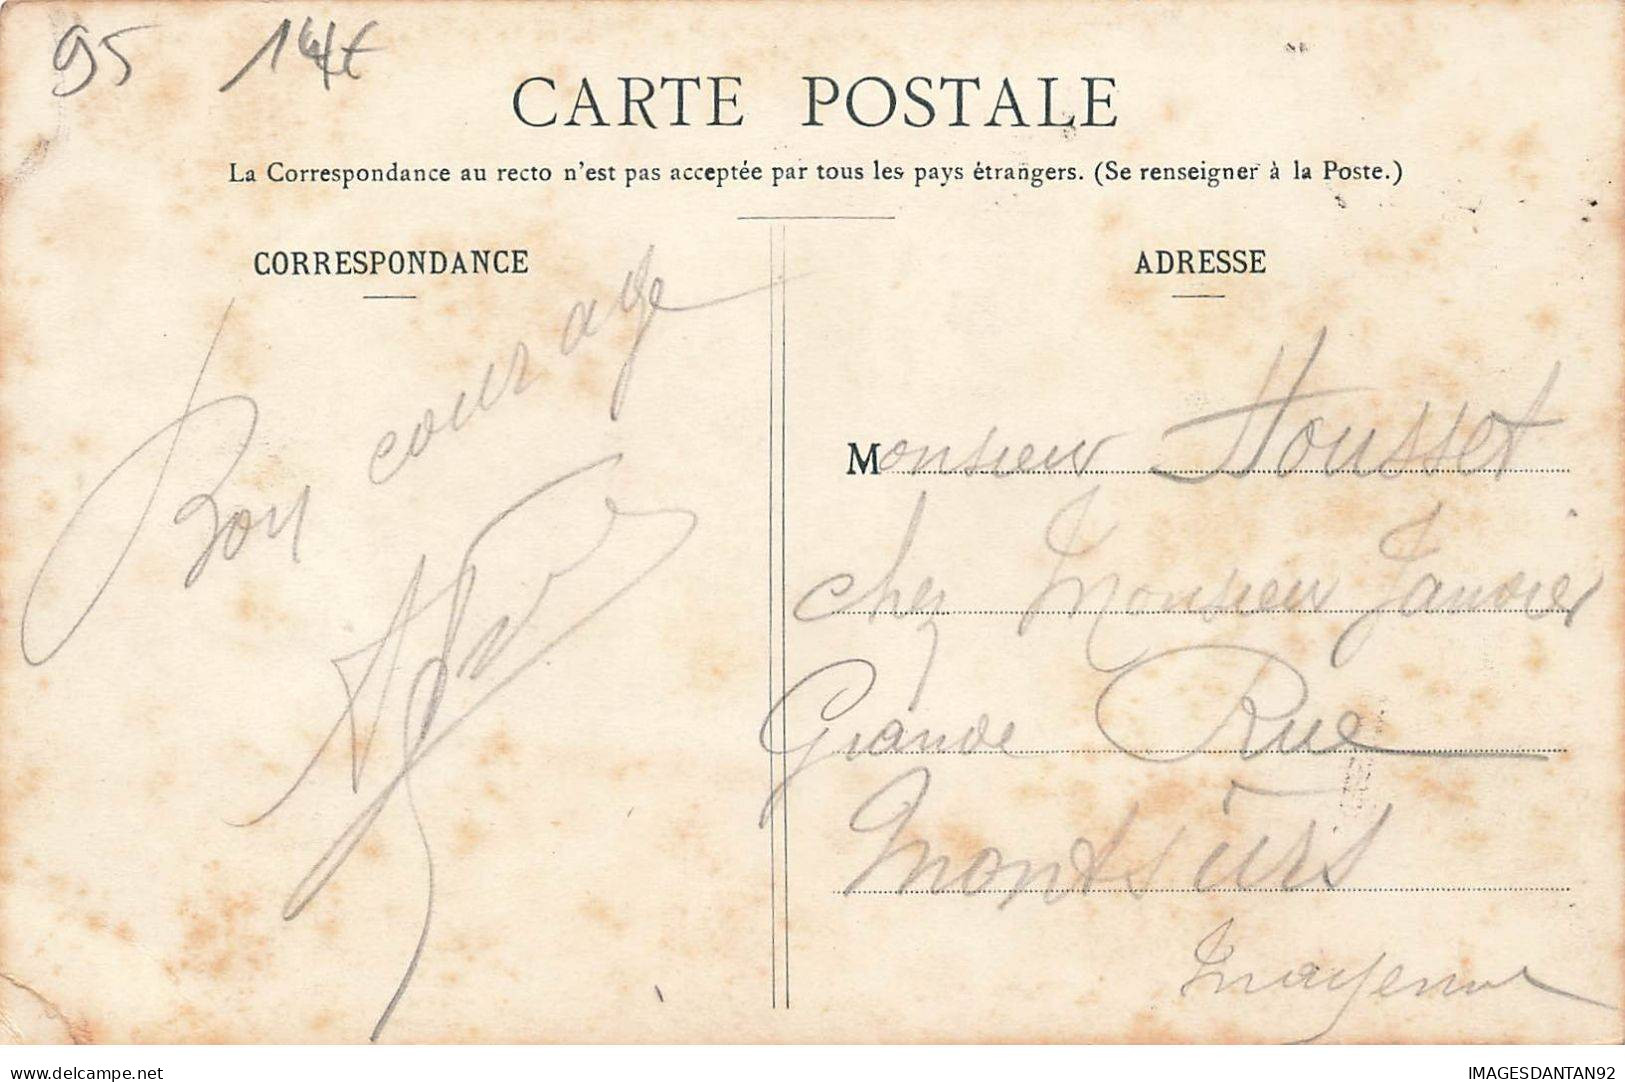 95 14€
CARTE POSTALE
La Correspondance au recto n'est pas acceptée par tous les pays étrangers. (Se renseigner à la Poste.)
CORRESPONDANCE
Bon courage
ADRESSE
Monsieur Housset
chez Monsieur Janvier
Grande Rue
Montsûrs
Mayenne
delcampe.net
IMAGESDANTAN92